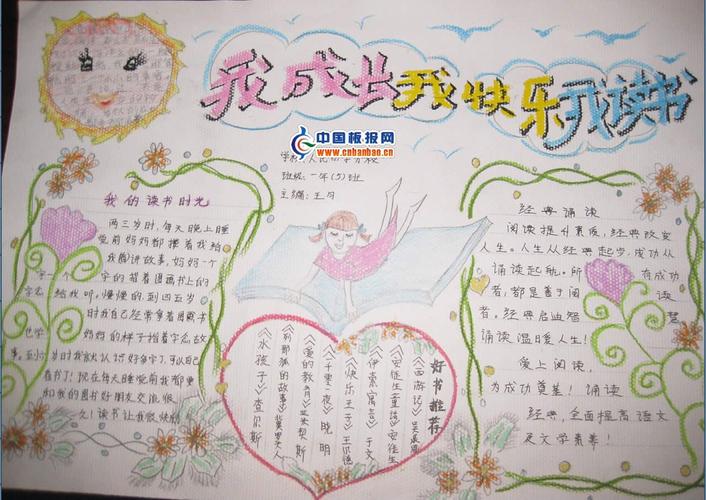 我成长我快乐我读书
中国板报网
www.cnbanbao.cn
班级:一年(5)班
主编:王月
我的读书时光
两三岁时,每天晚上睡
觉前妈妈都搂着我给
我讲故事,妈妈一个
字一个字的指着图画书上的
给我听。慢慢的到四五岁
时我自己经常拿着图画书
妈妈的样子指着字念故
时我就认识好多字了,可以自己
看书了!现在每天睡觉前我都要
和我的图书好朋友交流很
久!读书让我很快乐!
好书推荐
《西游记》吴承恩
《安徒生童话》安徒生
《伊索寓言》于文
《快乐王子》王尔德
《一千零一夜》晓明
《爱的教育》亚米契斯
《列那狐的故事》季诺夫人
《水孩子》查尔斯
经典诵读
阅读提升素质,经典改变
人生。人生从经典起步,成功从
诵读起航。所有成功
者,都是善于阅读
者。经典启迪智慧
诵读温暖人生!
爱上阅读,
为成功奠基!诵读
经典,全面提高语文
及文学素养!